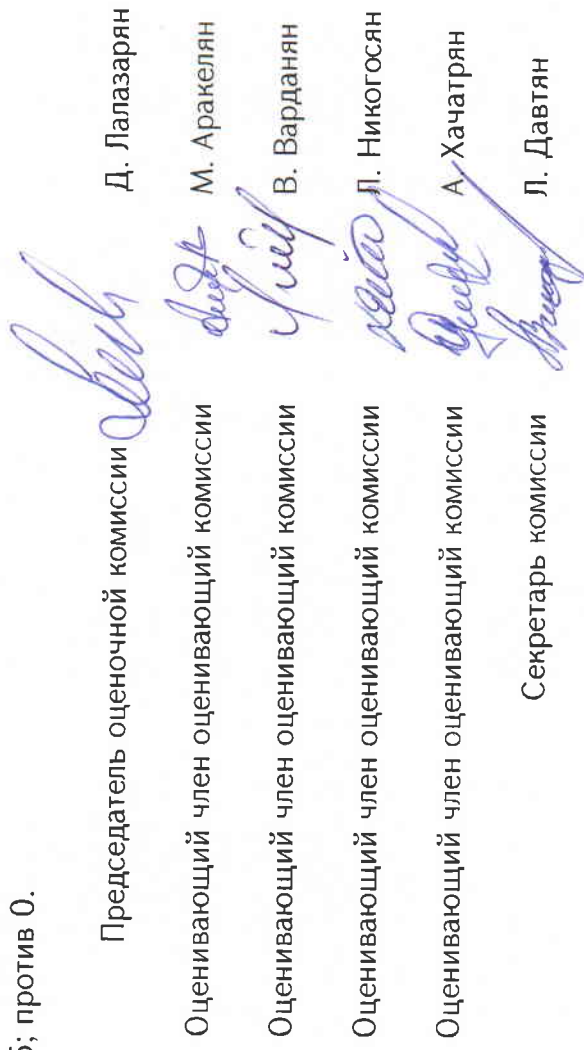 5; против 0.
Председатель оценочной комиссии Д. Лалазарян
Оценивающий член оценивающий комиссии М. Аракелян
Оценивающий член оценивающий комиссии В. Варданян
Оценивающий член оценивающий комиссии Л. Никогосян
Оценивающий член оценивающий комиссии А. Хачатрян
Секретарь комиссии Л. Давтян